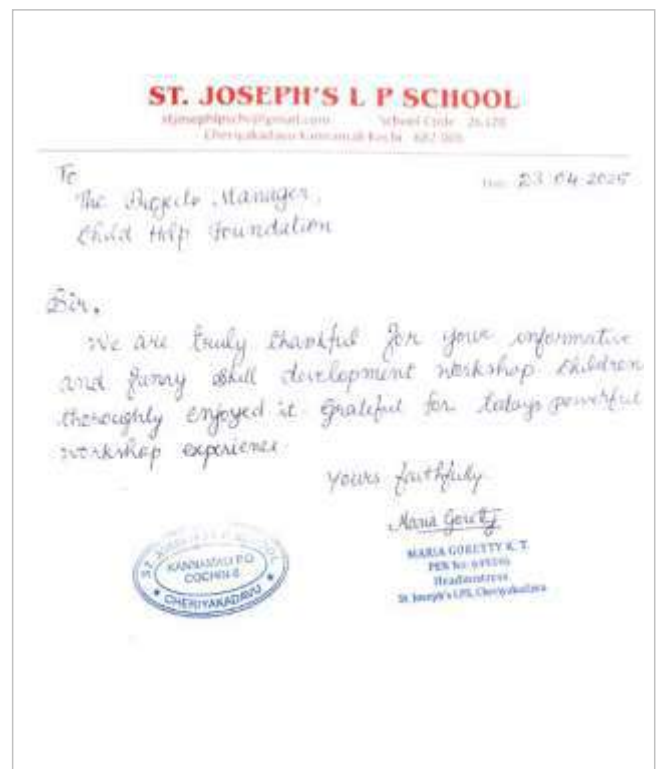 ST. JOSEPH'S L P SCHOOL
School Code
Cheriyakadavu Kannamali Kochi
To
23-04-2025
The Projects Manager,
Child Help Foundation
Sir,
We are truly thankful for your informative
and funny skill development workshop. Children
thoroughly enjoyed it. Grateful for todays powerful
workshop experience.
Yours faithfully
Maria Goretty
MARIA GORETTY K. T.
PEN No:
Headmistress
St. Joseph's LPS, Cheriyakadavu
KANNAMALI P.O
COCHIN-8
CHERIYAKADAVU